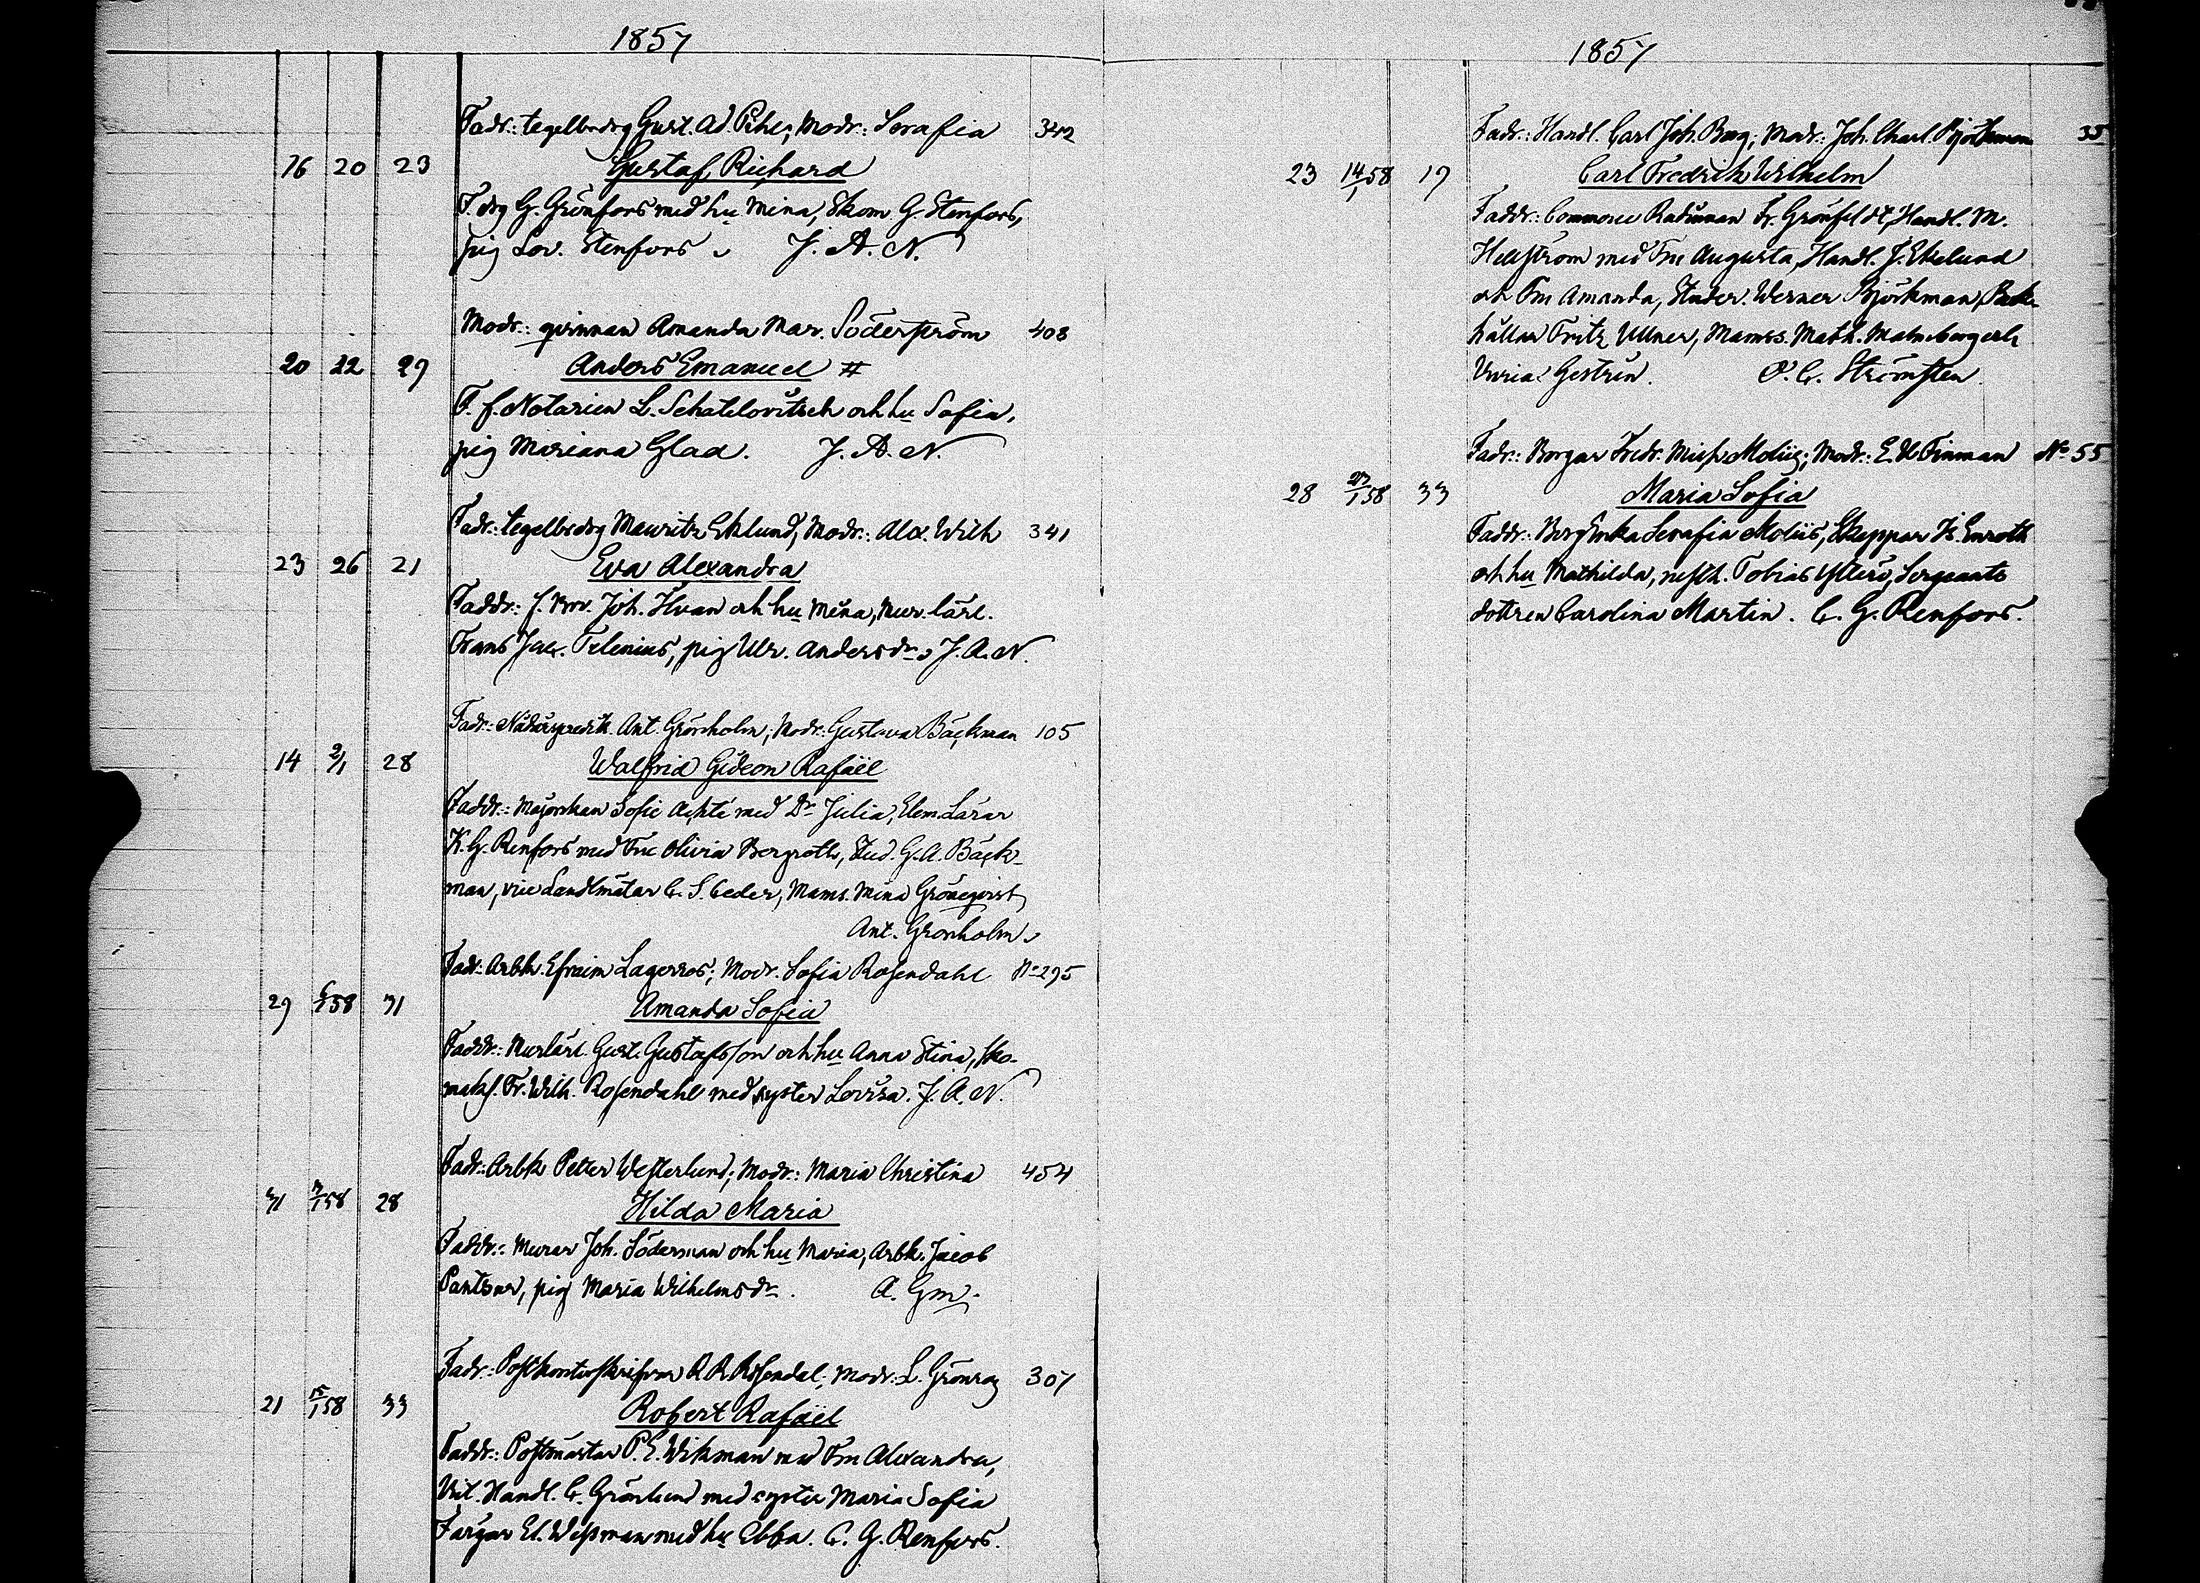 1857
Fadr.: tegelbrdrg Gust. Ad. Pihl; Modr.: Serafia 342
16 20 23 Gustaf Richard
F. drg G. Grönfors med hu Mina, Skom. G. Stenfors,
pig Lov. Stenfors J. A. N.
Modr.: qvinnan Amanda Mar. Söderström 408
20 22 29 Anders Emanuel #
F. f. Notarien L. Schatelovitsch och hu Sofia,
pig Mariana Glad. J. A. N.
Fadr.: tegelbrdrg Mauritz Eklund; Modr.: Alex. Wilh 341
23 26 21 Eva Alexandra
Faddr.: f. Joh. Ilvan och hu Mina, Mur. lärl.
Frans Jac. Telenius, pig Ulr. Andersdr J. A. N.
Fadr.: Nådårspredik. Ant. Grönholm; Modr: Gustava Bäckman 105
14 2/1 28 Walfrid Gideon Rafaël
Faddr.: Majorskan Sofie Achté med Dr Julia, Elem. Lärar
K. G. Renfors med Fru Olivia Bergroth, Stud. G. A. Bäck-
man, vice Landtmätar C. S. Ceder, Mams. Mina Grönqvist
Ant. Grönholm
Fadr: Arbk. Efraim Lagerros; Modr. Sofia Rosendahl No 295
29 6/1 58 31 Amanda Sofia
Faddr.: Murlärl. Gust. Gustafsson och hu Anna Stina, sko-
mak. Fr. Wilh. Rosendahl med syster Lovisa. J. A. N.
Fadr.: Arbk Petter Westerlund; Modr.: Maria Christina 454
31 58 28 Hilda Maria
Faddr.: Murar Joh. Söderman och hu Maria, Arbk. Jacob
Pantsar, pig Maria Wilhelmsdr. A. Gm.
Fadr.: Postkontorskrifvar R. R. Rosendal; Modr.: L. Grönroos 307
21 15/1 58 33 Robert Rafaël
Faddr.: Postmästar P. E. Wikman med Fru Alexandra,
Vict. Handl. C. Grönlund med syster Maria Sofia
Färgar Ed. Wessman med hu Ebba. C. G. Renfors.
1857
Fadr.: Handl. Carl Joh. Borg; Modr.: Joh. Charl. Björkman 35
23 14/1 58 19 Carl Fredrik Wilhelm
Faddr.: Commerce Rådman Fr. Grönfeldt, Handl. M.
Hellström med Fru Augusta, Handl. J. Ekelund
och Fru Amanda, Studer. Werner Björkman, Bok-
hållar Fritz Ullner, Mamss. Math. Malmberg och
Maria Gestrin. O. C. Strömsten.
Fadr.: Borgar Fredr. Mich. Moliis; Modr.: E. U. Finman No 55
28 27/1 58 33 Maria Sofia
Faddr.: Borg Enka Serafia Moliis, Skeppar K. Enroth
och hu Mathilda, Tobias, Sergeants
dottren Carolina Martin. C. G. Renfors.